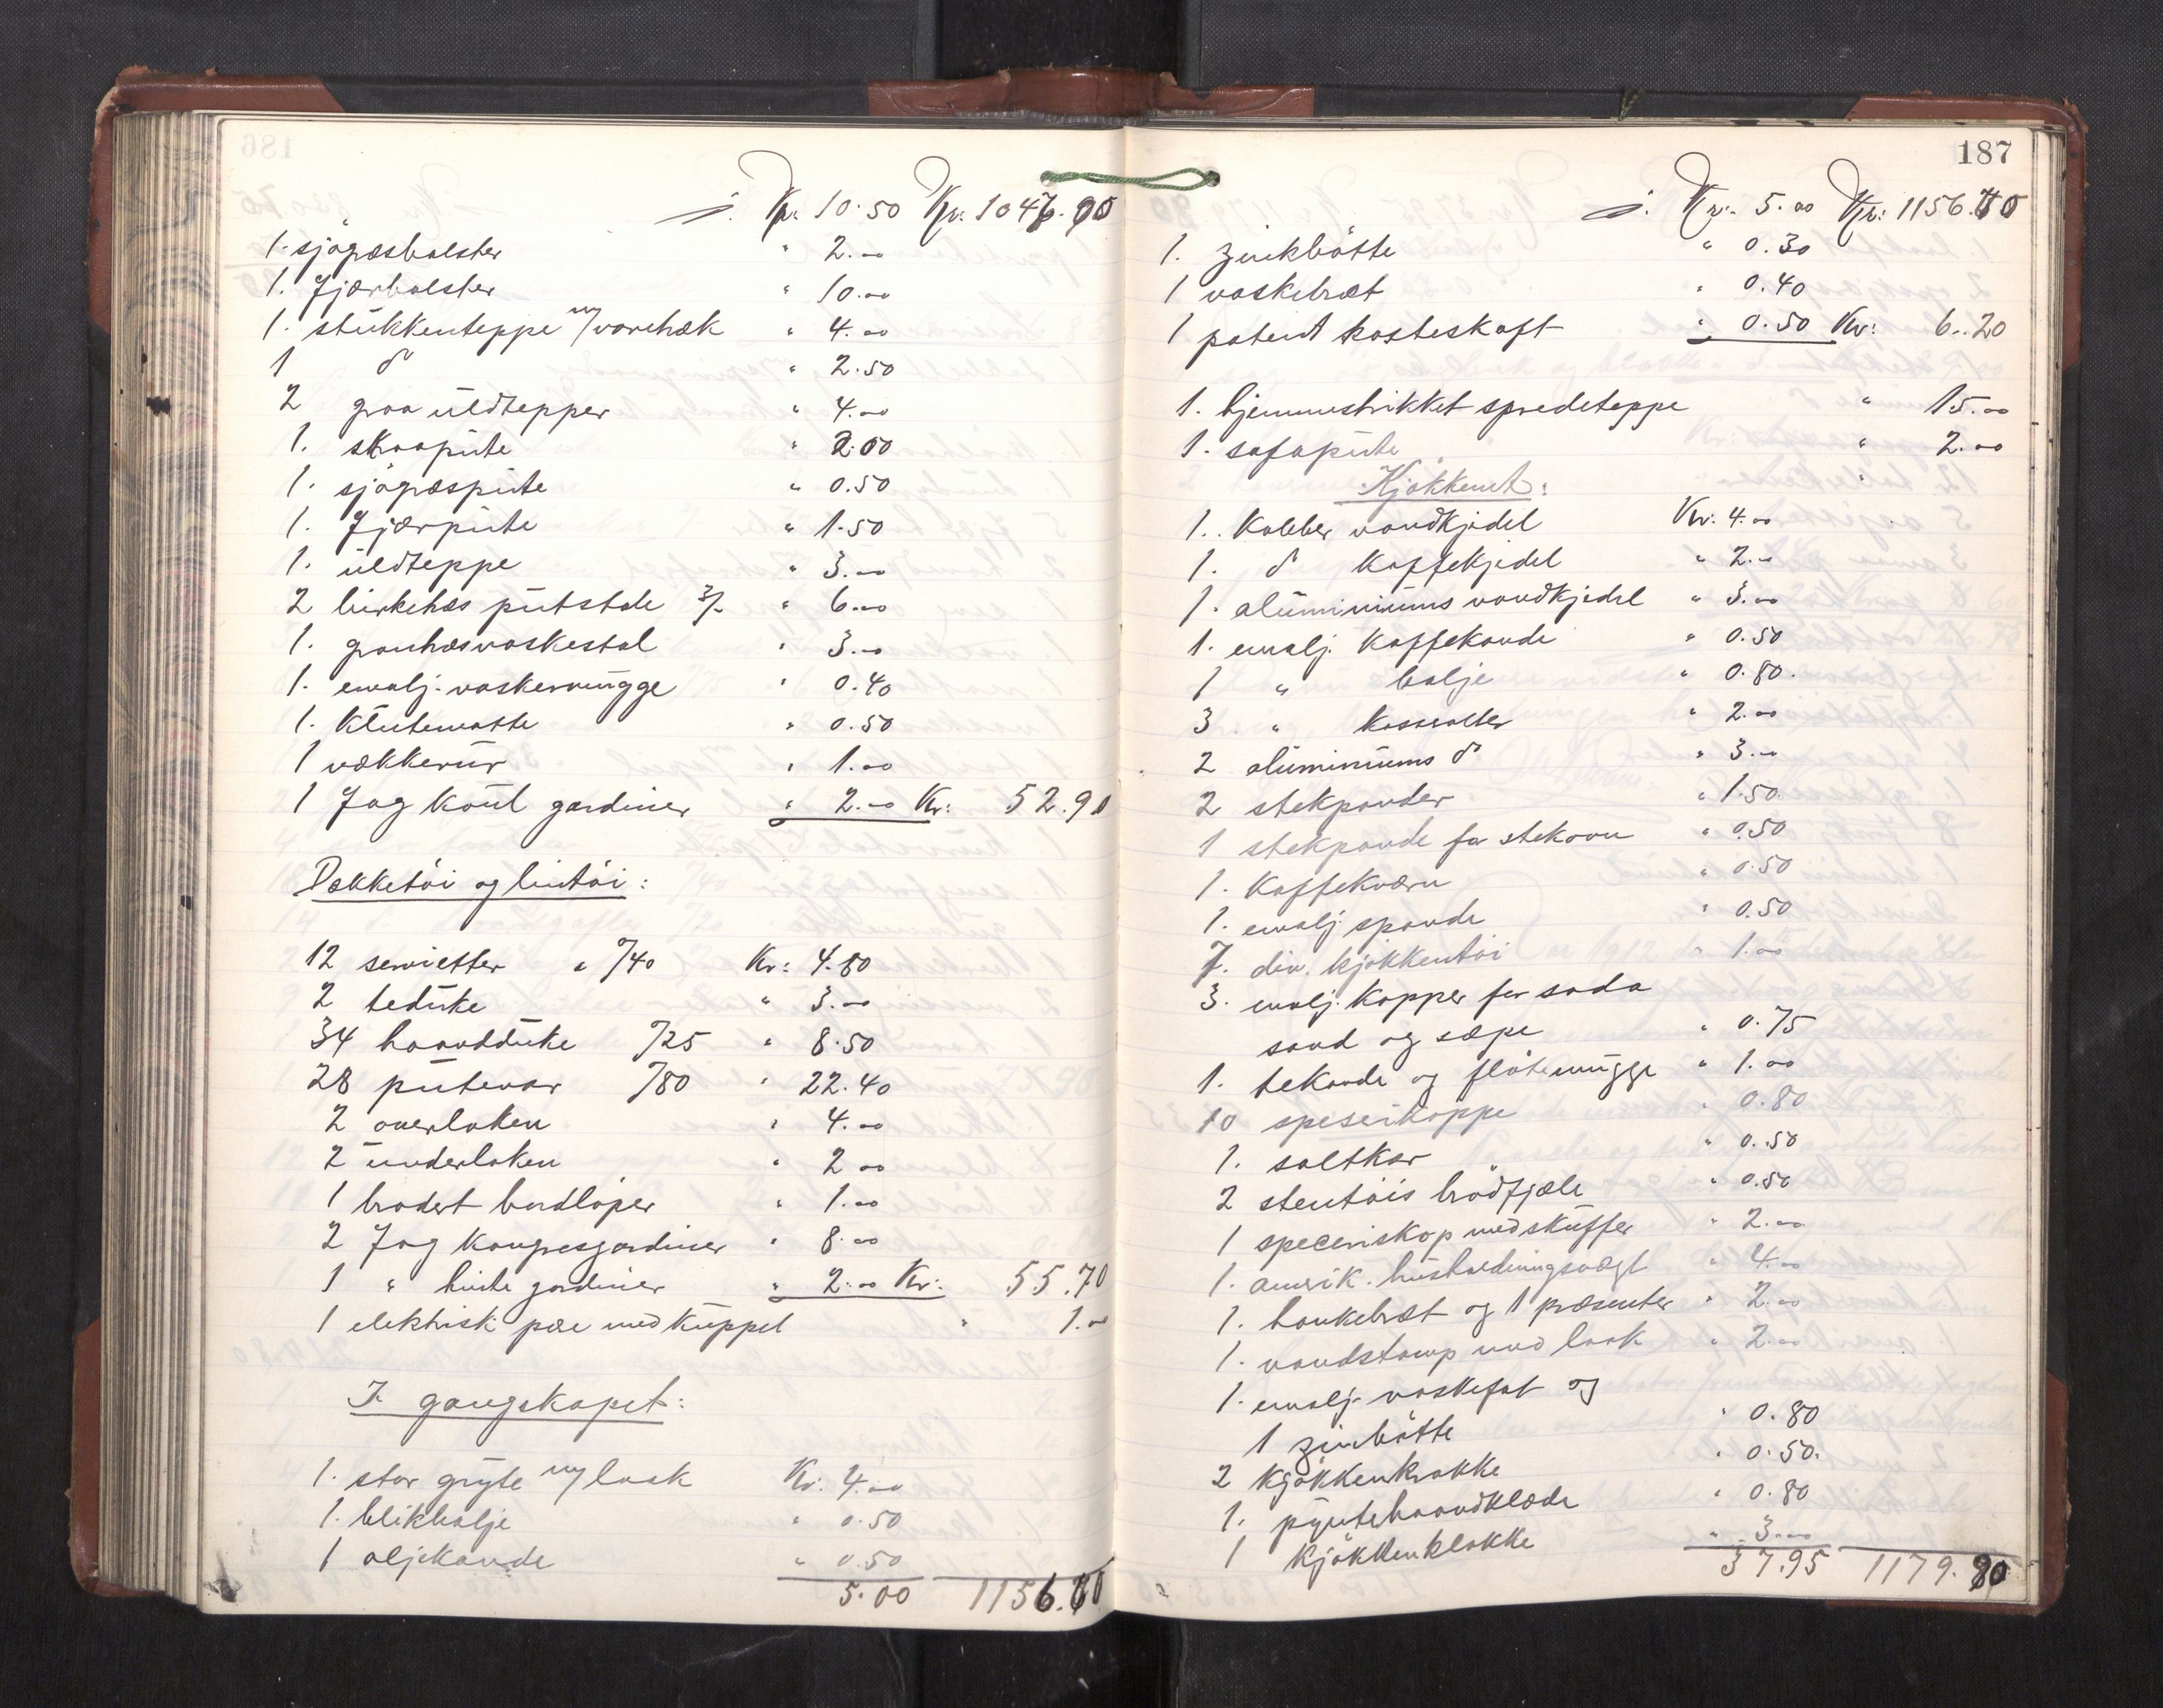 Kr. 10.50 Kr: 1047.00
1. sjögræsbolster " 2.00
1. Fjærbolster " 10.00
1. stükkenteppe m/ varetræk " 4.00
1 do " 2.50
2 graa üldtepper " 4.00
1. skraapüte " 2.00
1. sjögræspüte " 0.50
1. Fjærpüte " 1.50
1. üldteppe " 3.00
2 birketræs pütstole 3/- " 6.00
1. grantræsvaskestol " 3.00
1. emalj. vaskemügge " 0.40
1. Klütematte " 0.50
1 vækkerür " 1.00
1 Fag Köül gardiner " 2.00 Kr: 52.90
Dækketöi og lintöi:
12 servietter a "/40 Kr: 4.80
2 tedüke " 3.00
34 haanddüke "/25 " 8.50
28 pütevar "/80 " 22.40
2 overlaken " 4.00
2 ünderlaken " 2 00
1 brodert bordlöper " 1.00
2 Fag Kongresgardiner " 8.00
1 " hvite gardiner " 2.00 Kr: 55.70
1 elektrisk pære med Küppel " 1.00
I gangskapet:
1. stor gryte m/ laak Kr. 4.00
1. blikbalje " 0.50
1 oljekande " 0.50
5.00 1156.60
187
Kr. 5.00 Kr: 1156.60
1. zinkbötte " 0.30
1 vaskebræt " 0.40
1 patent kosteskaft " 0.50 Kr: 6.20
1. hjemmestrikket spredeteppe " 15.00
1. sofapüte " 2.00
Kjökkenet:
1. Kobber vandkjedel Kr. 4.00
1. do Kaffekjedel " 2.00
1. alüminiüms vandkjedel " 3.00
1. emalj. Kaffekande " 0.50
1 " balje " 0.80.
3 " Kasseroller " 2.00
2 alüminiüms do " 3.00
2 stekpander " 1.50.
1 stekpande for stekovn " 0.50
1. Kaffekværn " 0.50
1. emalj. spande " 0.50
7. div. kjökkentöi " 1.00
3. emalj. Kopper for soda
sand og sæpe " 0.75
1. tekande og flötemügge " 1.00
10 speserikoppe " 0.80
1. saltkar " 0.50
2 stentöis brödfjæle " 0.50
1 speceriskap med skuffer " 2.00
1. amrik. hüsholdningsvægt " 4.00
1. bankebræt og 1 præsenter " 2.00
1. vandstamp med laak " 2.00
1. emalj. vaskefat og
1 zinbötte " 0.80
2 Kjökkenkrakke " 0.50.
1. pyntehaandklæde " 0.80
1 Kjökkenklokke " 3.00
37.95 1179.80